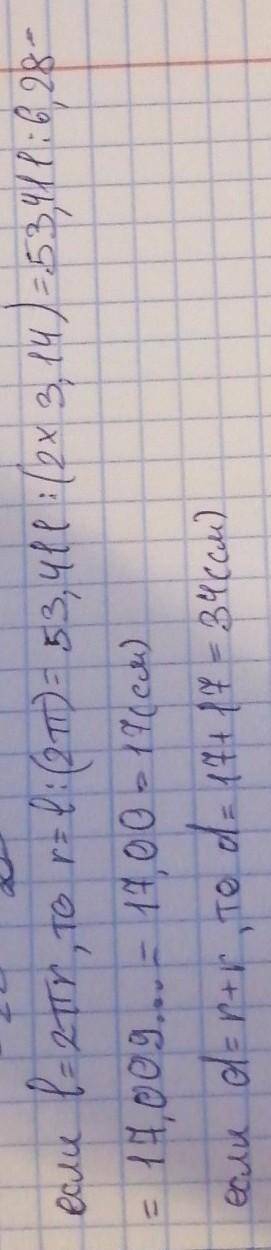 если l=2πr, то r=l:(2π)=53,411:(2x3,14)=53,411:6,28=
=17,009...=17,00=17(см)
если d=r+r, то d=17+17=34(см)